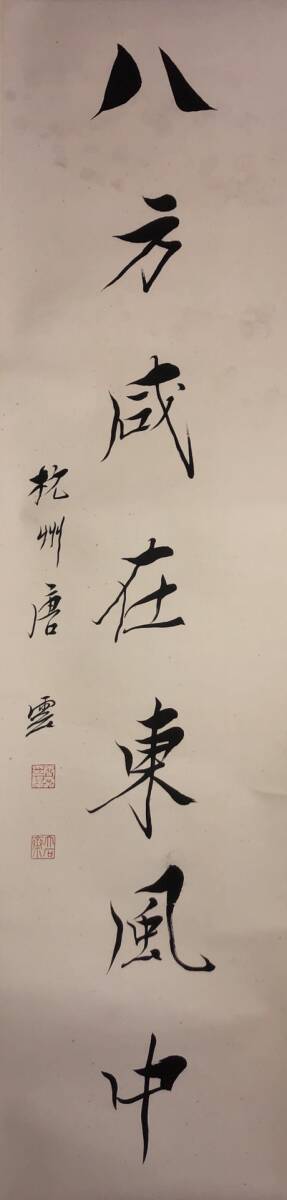 八方咸在東風中
杭州唐雲